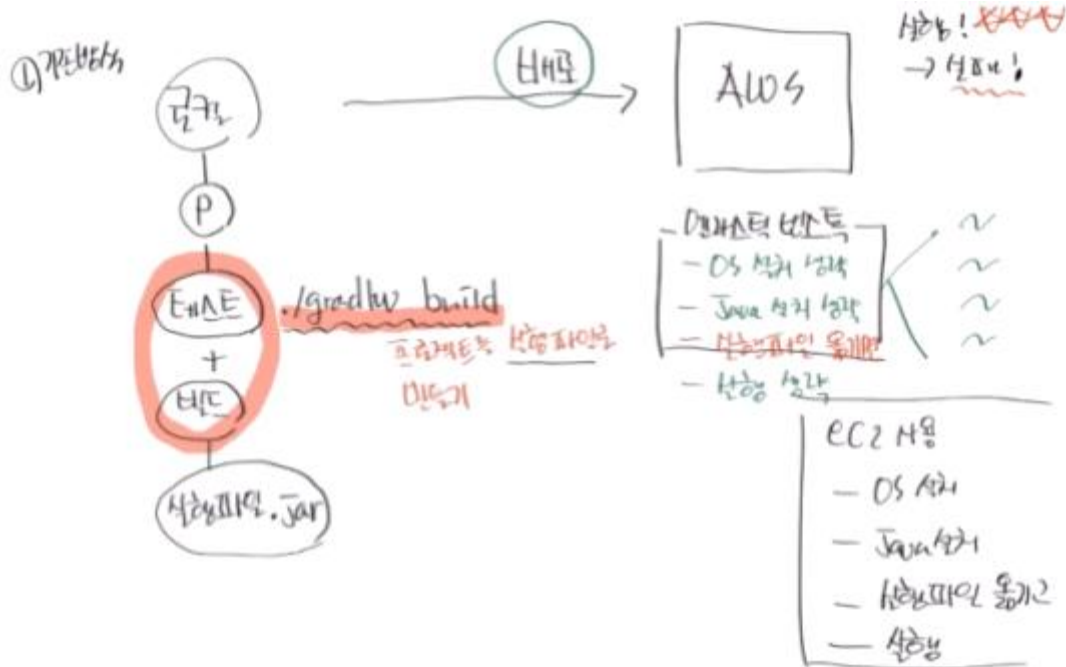 ① 기존방식
로컬
P
테스트
+
빌드
실행파일.jar
./gradlw build
프로젝트를 실행파일로
만들기
배포
AWS
실행!
→ 실패!
엘라스틱 빈스톡
- OS 설치 생략
- Java 설치 생략
- 실행파일 옮기면
- 실행 생략
~
~
~
~
EC2 사용
- OS 설치
- Java 설치
- 실행파일 옮기고
- 실행